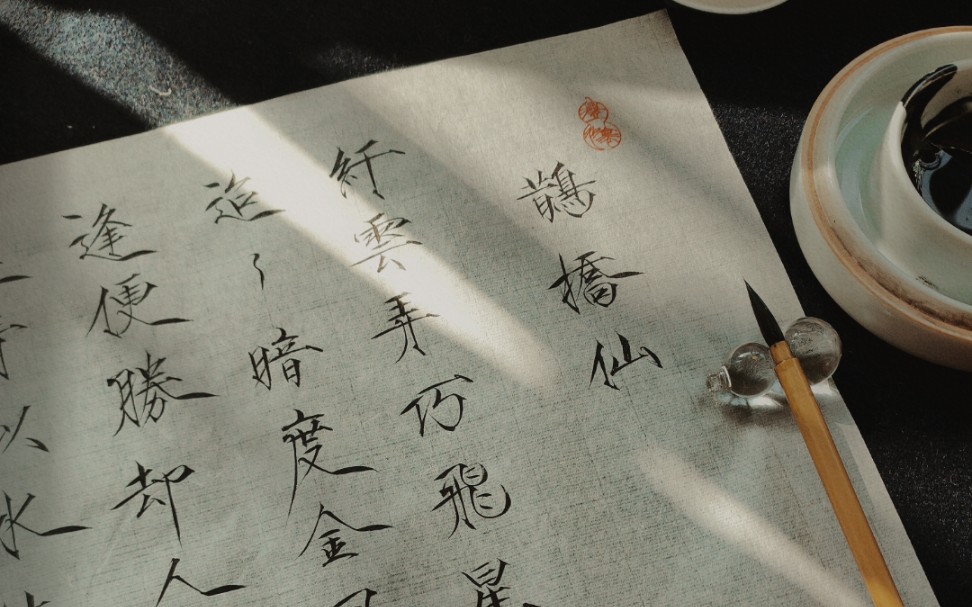 鵲橋仙
纤雲弄巧飛星
迢〻暗度金
逢便勝却人
似水